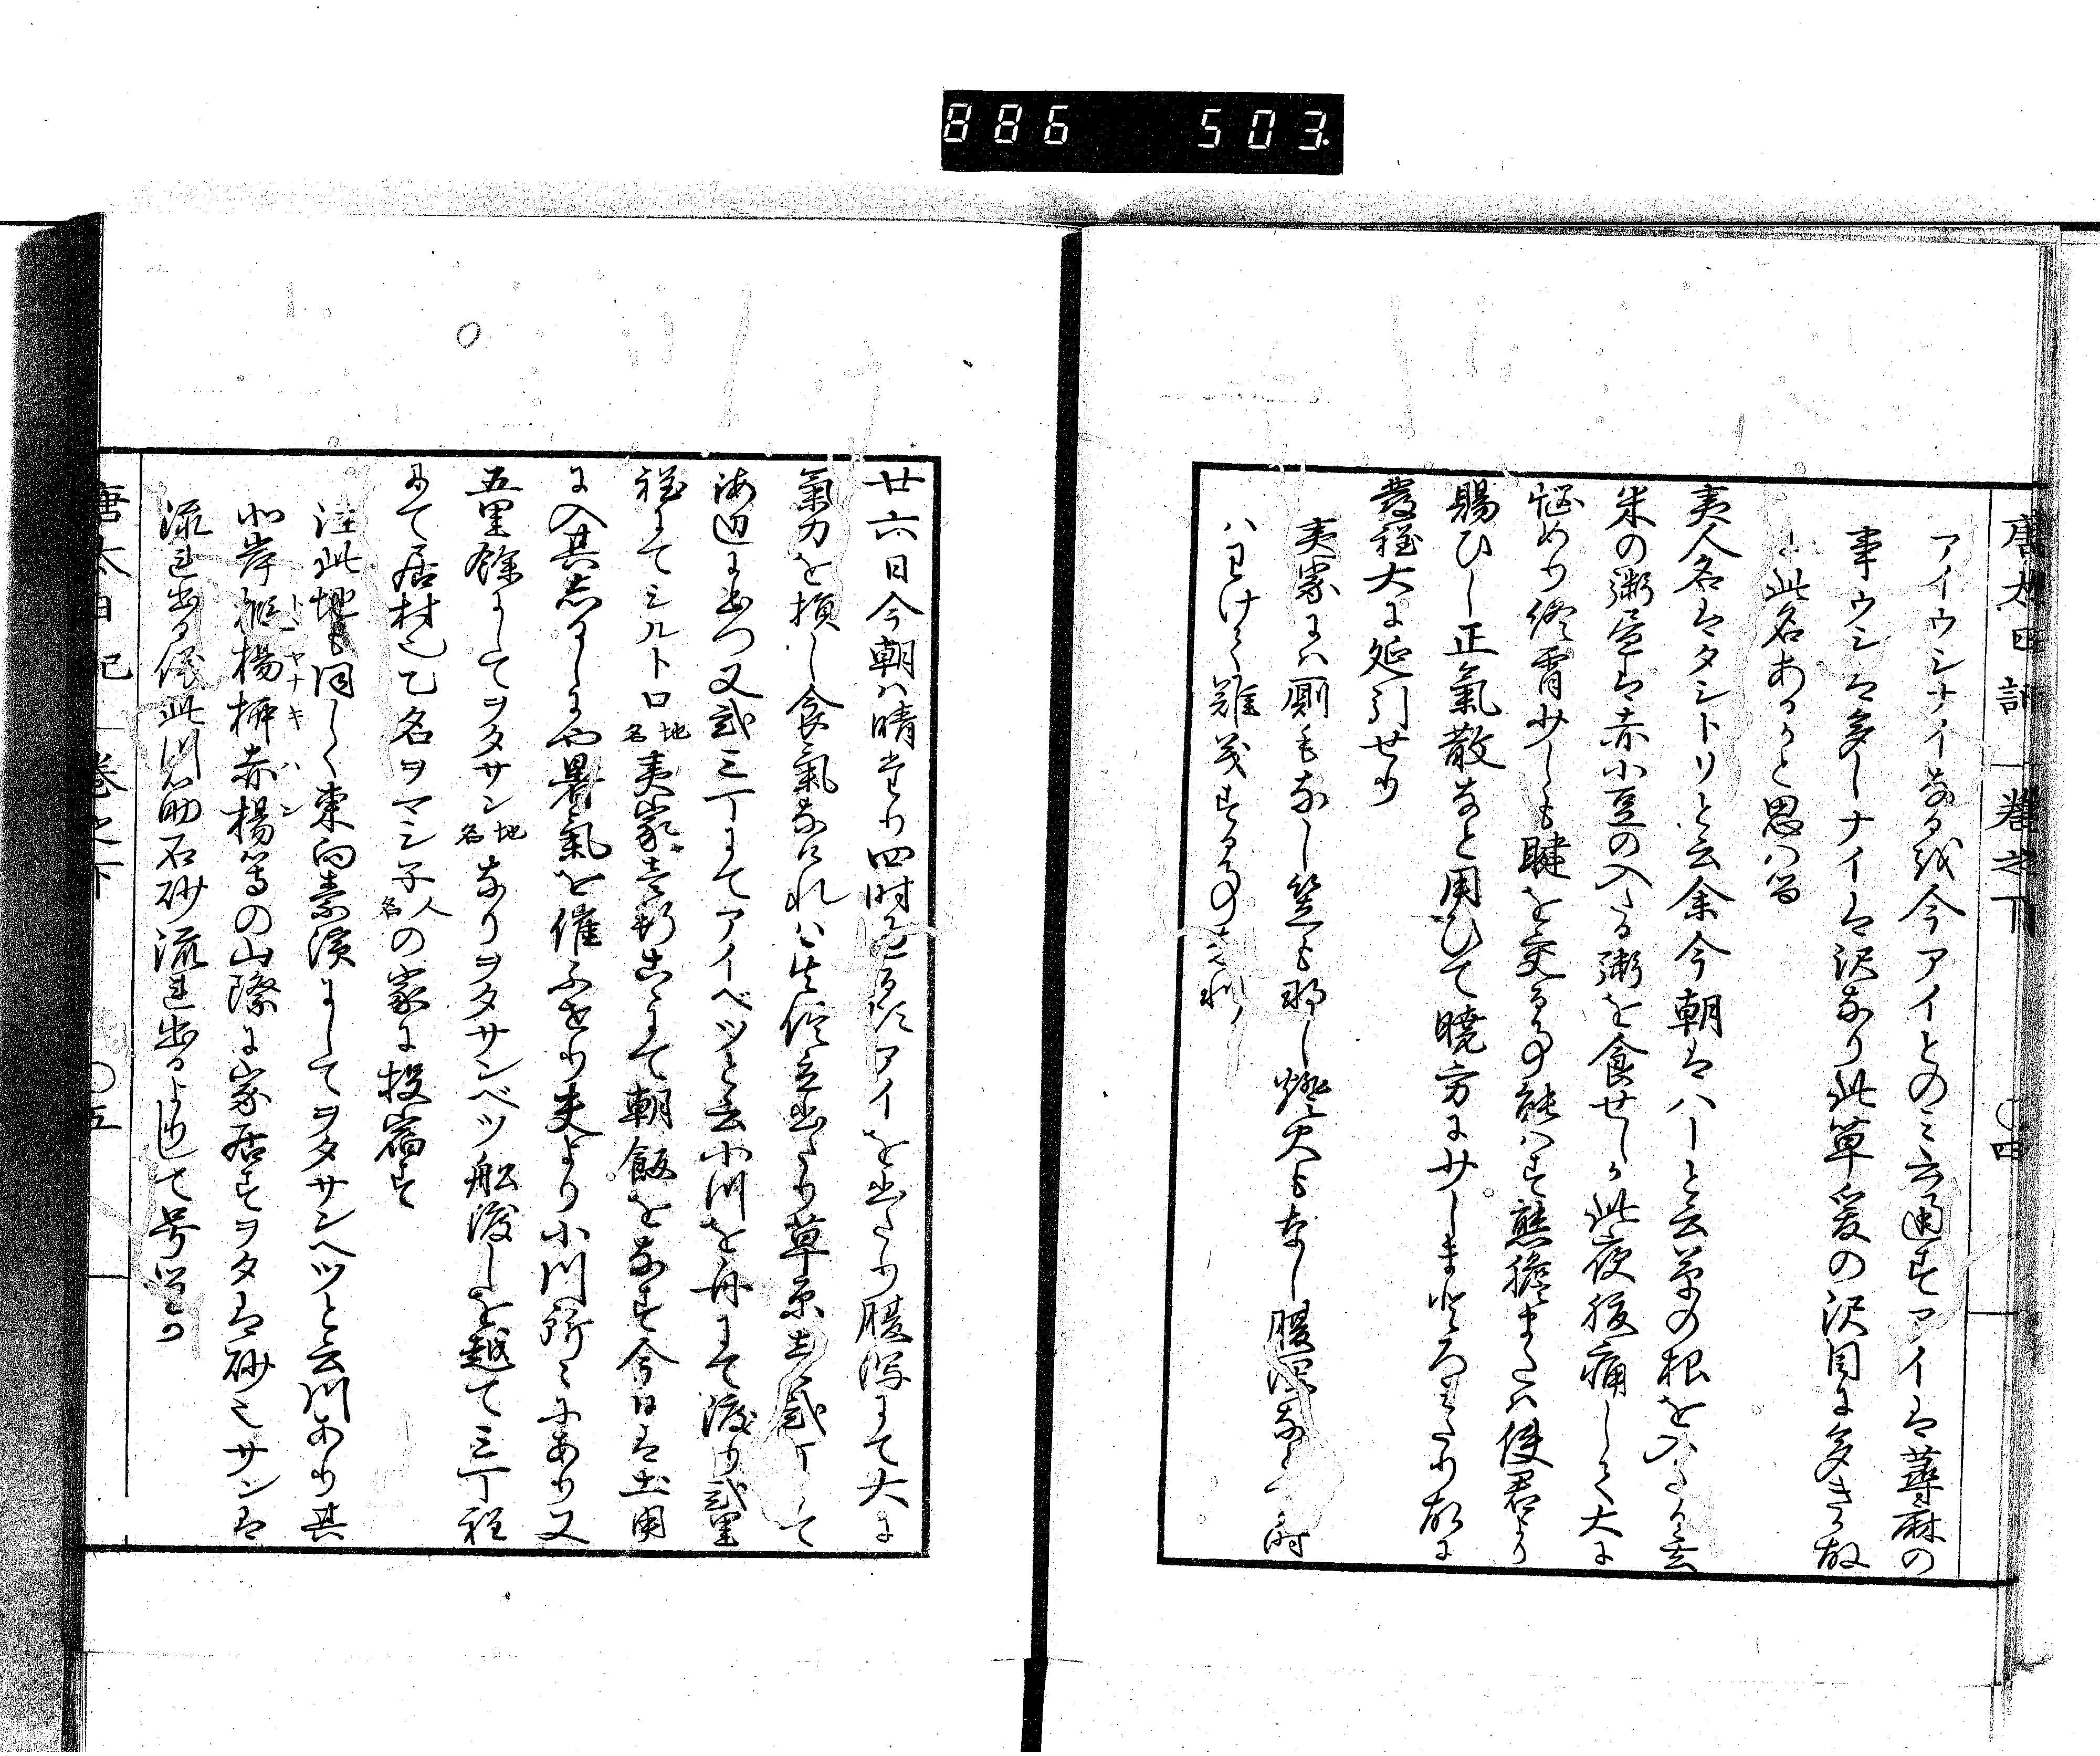 886 503
唐太日記 巻之下 〇四
アイウシナイなる哉今アイとのミ云通すアイは蕁麻の
事ウシは多しナイは沢なり此草爰の沢目に多きか故
に此名あるかと思ハる
夷人名はタシトリと云余今朝はハーと云草の根を入たる
米の粥昼は赤小豆の入たる粥を食せしか此夜腹痛して大に
悩めり終宵少しも睫を交る事能ハす熊膽または使君より
賜ひし正氣散なと用ひて暁方に少しまとろミたり故に
發程大に延引せり
夷家にハ厠もなし笠も那し燈火もなし腹瀉なとの時
ハわけて難義する事されハ
廿六日今朝ハ晴たり四時アイを出たり腹瀉にて大に
氣力を損し食氣なけれハ立出たり草原
海辺に出つ又弐三丁にてアイベツと云小川を舟にて渡り弐里
程にてミルトロ地名夷家壱軒こゝにて朝飯をなす今日は土用
に入其志るしにや暑氣を催ふせり夫より小川所々にあり又
五里餘にしてヲタサン地名なりヲタサンベツ船渡しを越て三丁程
にて居村也乙名ヲマシ子人名の家に投宿す
注此地も同しく東向素濱にしてヲタサンヘツと云川あり其
北岸椴トヽ楊ヤナキ柳赤楊ハン等の山際に家居すヲタは砂也サンは
流れ出る侭此川筋石砂流れ出るよりして号るか
唐太日記 巻之下 〇五